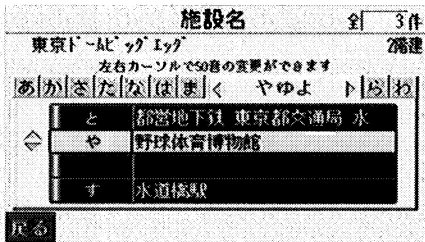 施設名 全 3件
東京ドームビッグエッグ 2階建
左右カーソルで50音の変更ができます
あ か さ た な は ま く やゆよ ト ら わ
と 都営地下鉄 東京都交通局 水
や 野球体育博物館
す 水道橋駅
戻る